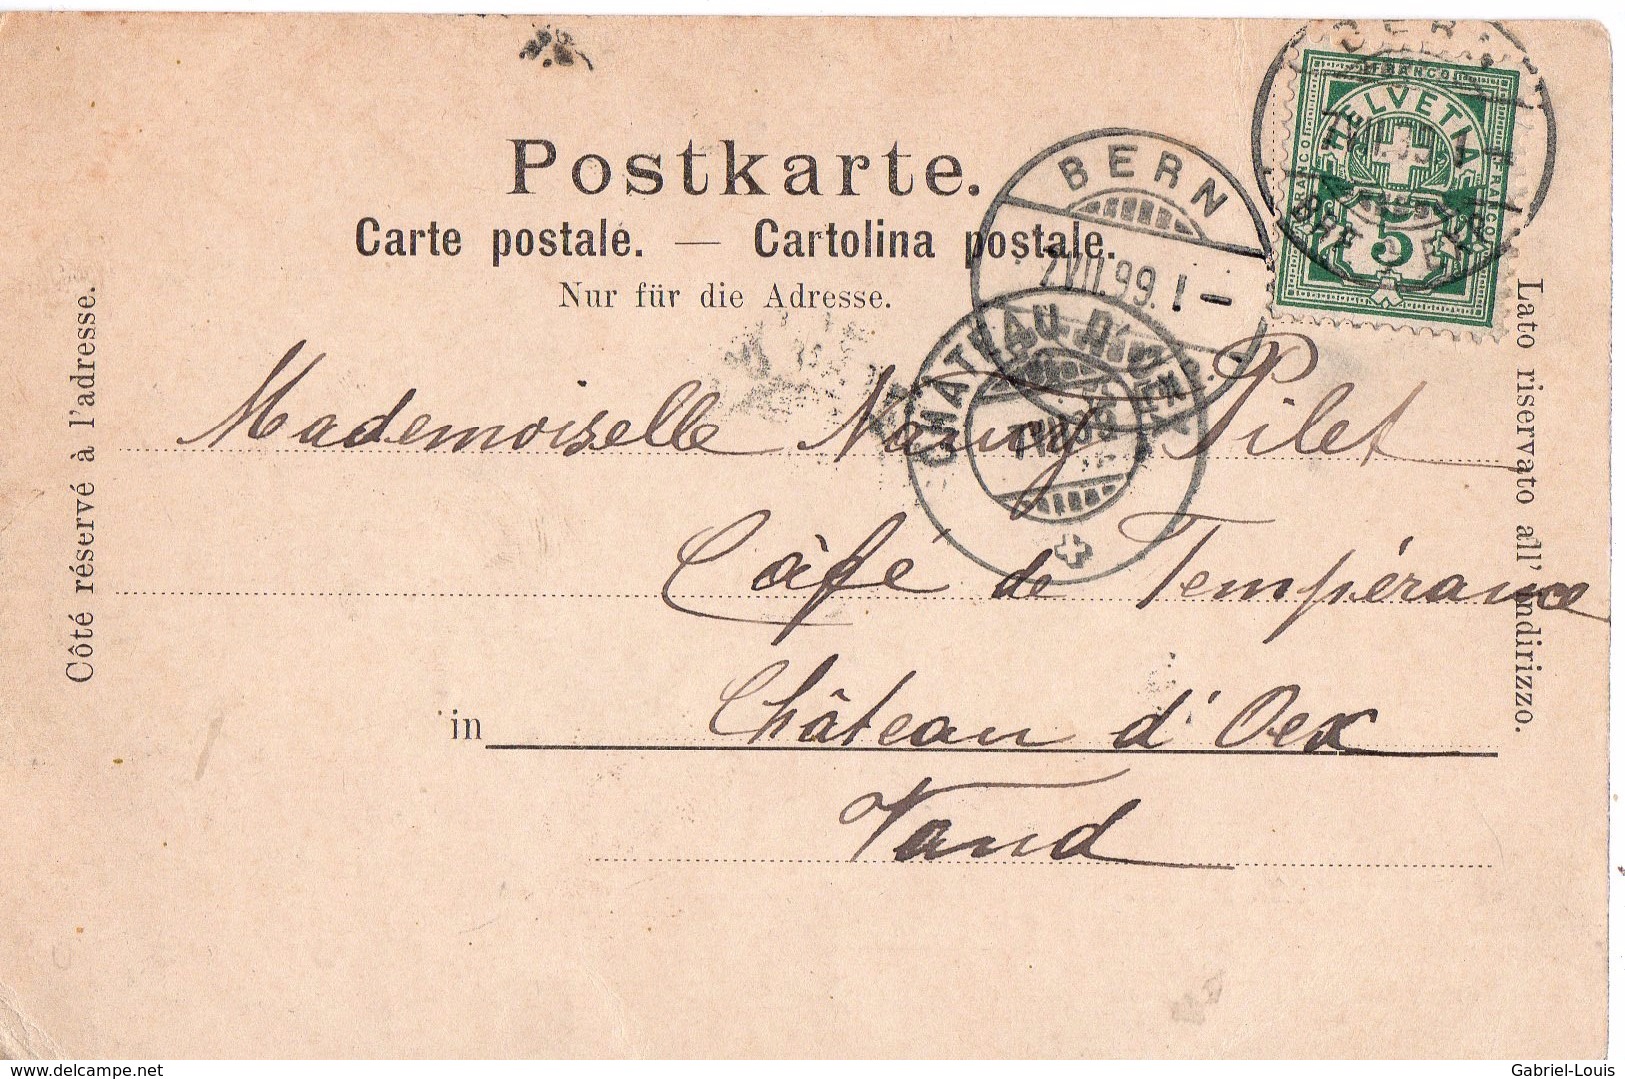 Postkarte.
Carte postale. — Cartolina postale.
Nur für die Adresse.
Côté réservé à l'adresse.
Lato riservato all' indirizzo.
BERN
FRANCO
HELVETIA
FRANCO
FRANCO
5
BERN
7.VII.99.I–
CHATEAU-D'ŒX
7.VII.99
Mademoiselle Nancy Pilet
Câfé de Tempérance
in Château d'Oex
Vaud
delcampe.net
Gabriel-Louis